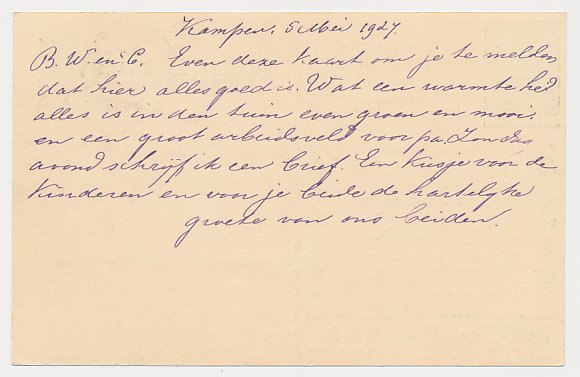 Kampen, 5 Mei 1927.
B. W. en C. Even deze kaart om je te melden
dat hier alles goed is. Wat een warmte hé
alles is in den tuin even groen en mooi,
en een groot arbeidsveld voor pa. Zondag
avond schrijf ik een brief. Een kusje voor de
kinderen en voor je beide de hartelijke
groete van ons beiden.